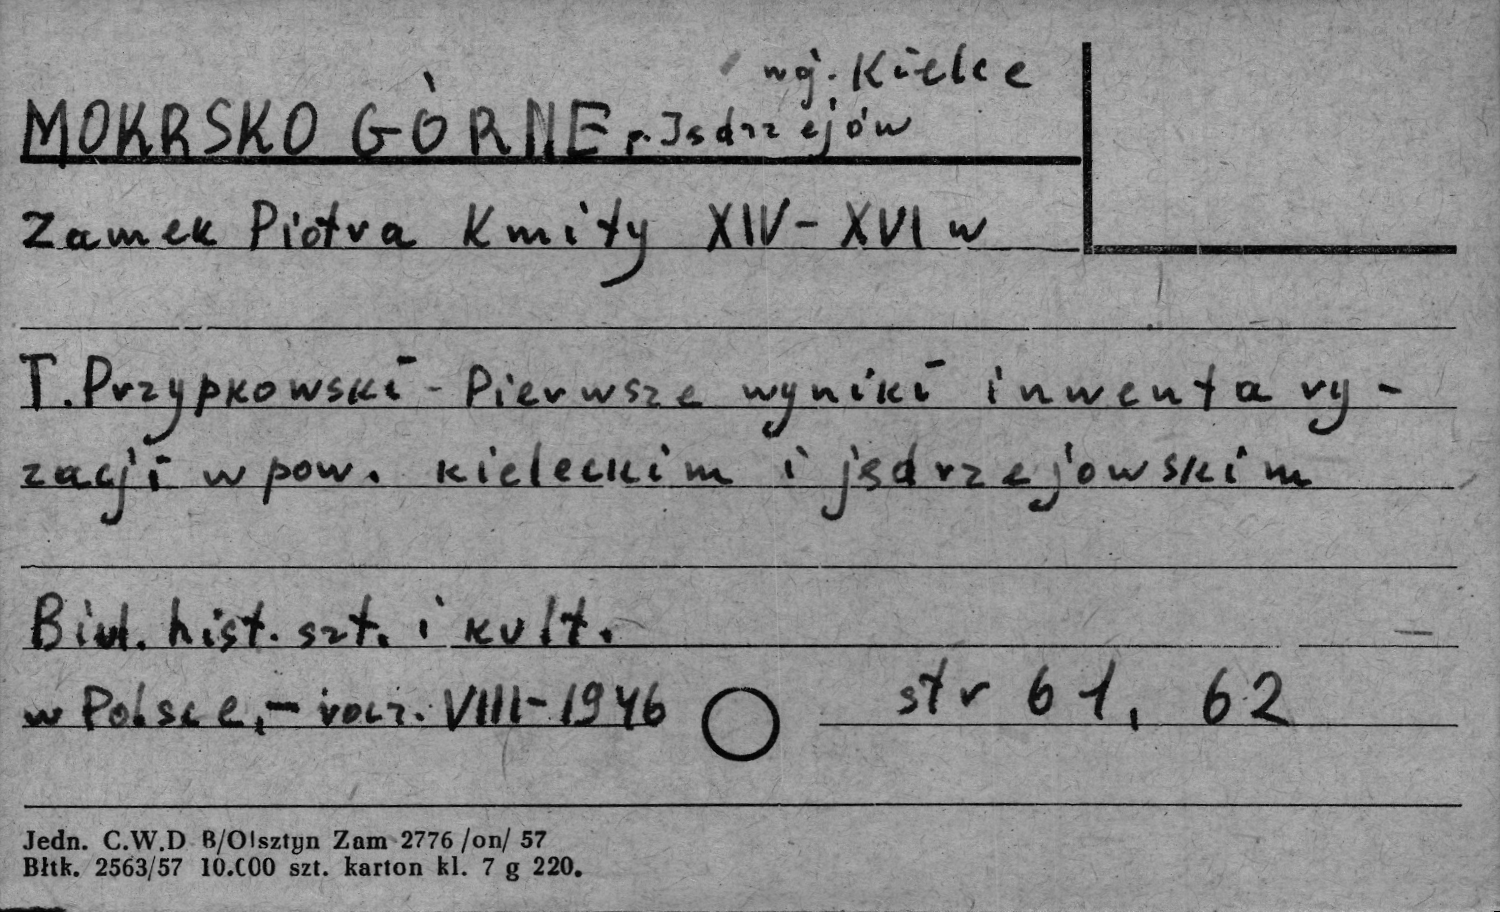 woj. Kielce
MOKRSKO GÓRNE p. Jędrzejów
Zamek Piotra Kmity XIV - XVI w
T. Przypkowski - Pierwsze wyniki inwentary -
zacji w pow. kieleckim i jędrzejowskim
Biul. hist. szt. i kult.
w Polsce, - rocz. VIII - 1946 str 61, 62
Jedn. C.W.D B/Olsztyn Zam 2776 /on/ 57
Błtk. 2563/57 10.000 szt. karton kl. 7 g 220.